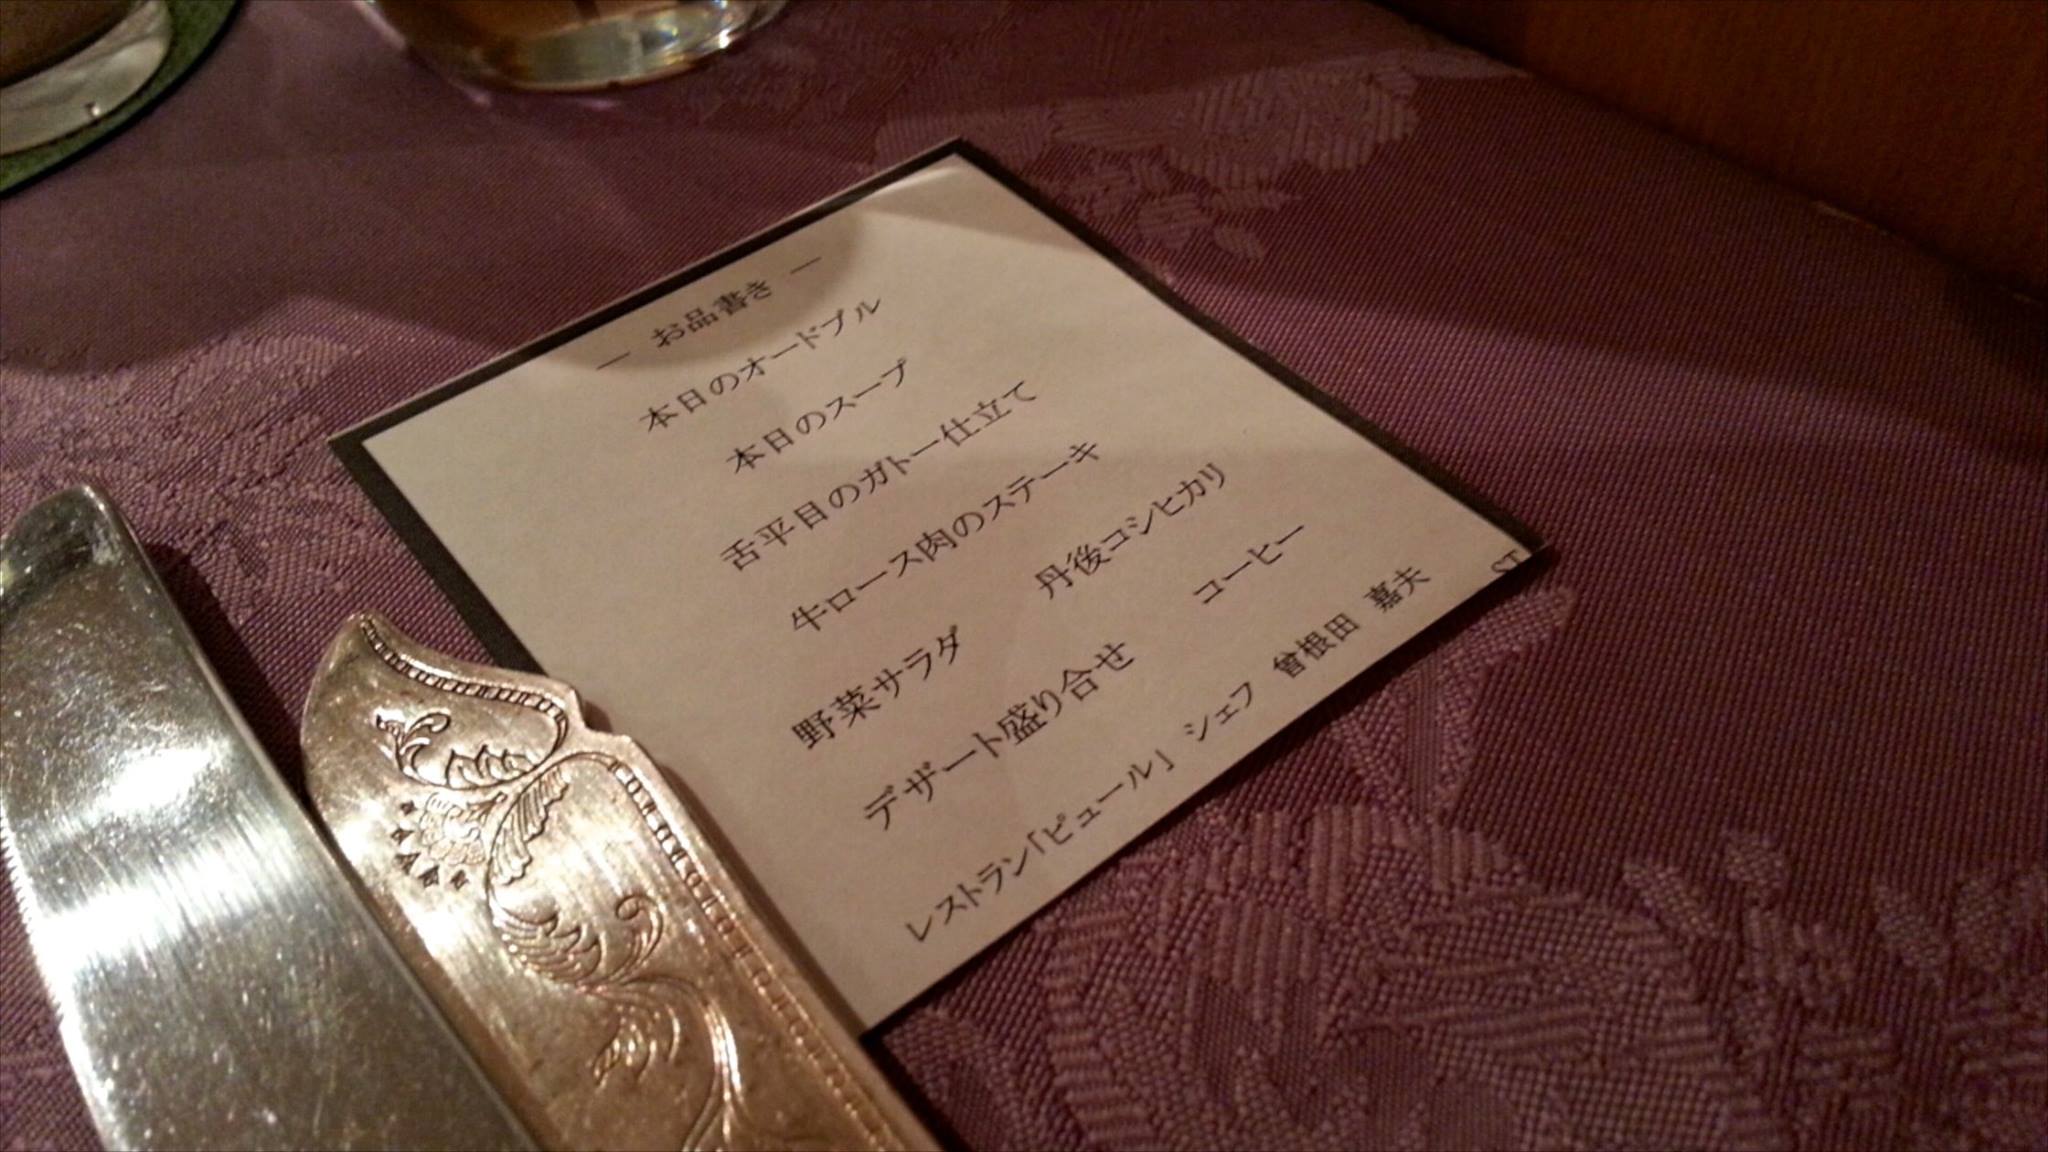 ― お品書き ―
本日のオードブル
本日のスープ
舌平目のガトー仕立て
牛ロース肉のステーキ
野菜サラダ 丹後コシヒカリ
デザート盛り合せ コーヒー
レストラン「ピュール」 シェフ 曾根田 嘉夫
ST